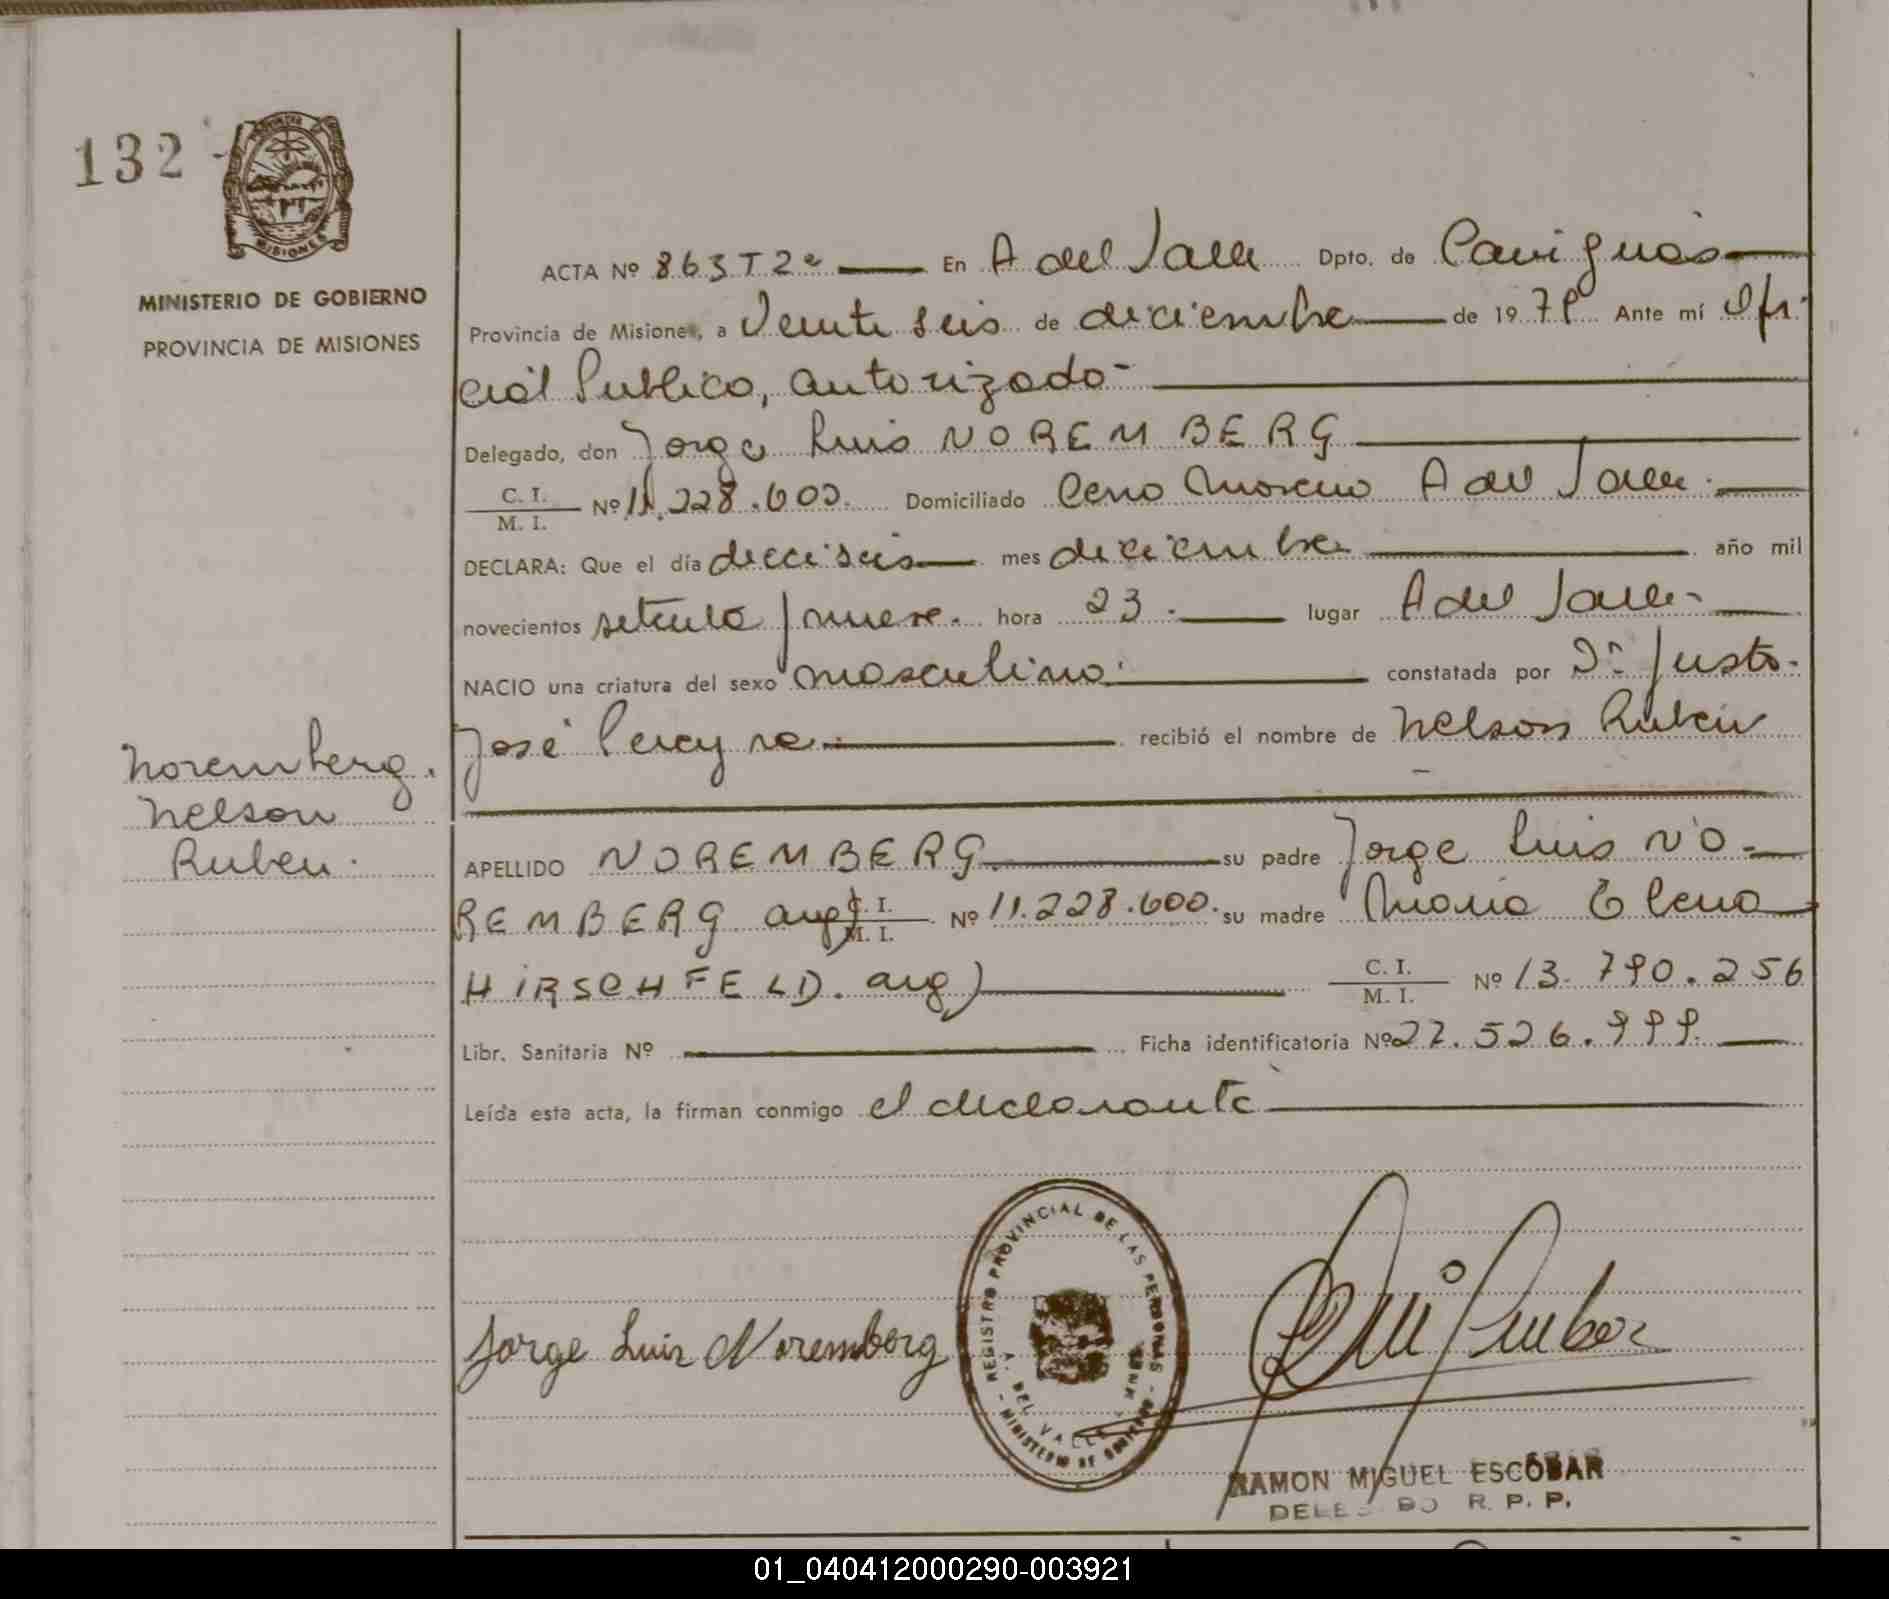 132
PROVINCIA DE
MISIONES
MINISTERIO DE GOBIERNO
PROVINCIA DE MISIONES
ACTA Nº 863 T2º En A del Valle Dpto. de Cainguás
Provincia de Misiones, a Veinte seis de diciembre de 1979 Ante mí Ofi-
cial Publico, autorizado-
Delegado, don Jorge Luis NOREMBERG
C. I.
M. I. Nº 11.228.600. Domiciliado Cerro Moreno A del Valle.
DECLARA: Que el día dieciseis mes diciembre año mil
novecientos setenta y nueve. hora 23. lugar A del Valle-
NACIO una criatura del sexo masculino. constatada por Dr Justo
José Pereyra. recibió el nombre de Nelson Ruben
Noremberg.
Nelson
Ruben.
APELLIDO NOREMBERG su padre Jorge Luis NO-
REMBERG arg) C. I. M. I. Nº 11.228.600. su madre Maria Elena
HIRSCHFELD. arg) C. I. M. I. Nº 13.790.256
Libr. Sanitaria Nº Ficha identificatoria Nº 27.526.999.
Leída esta acta, la firman conmigo el declarante
Jorge Luis Noremberg
REGISTRO PROVINCIAL DE LAS PERSONAS
A. DEL VALLE
MINISTERIO DE GOBIERNO
RAMON MIGUEL ESCOBAR
DELEGADO R. P. P.
01_040412000290-003921